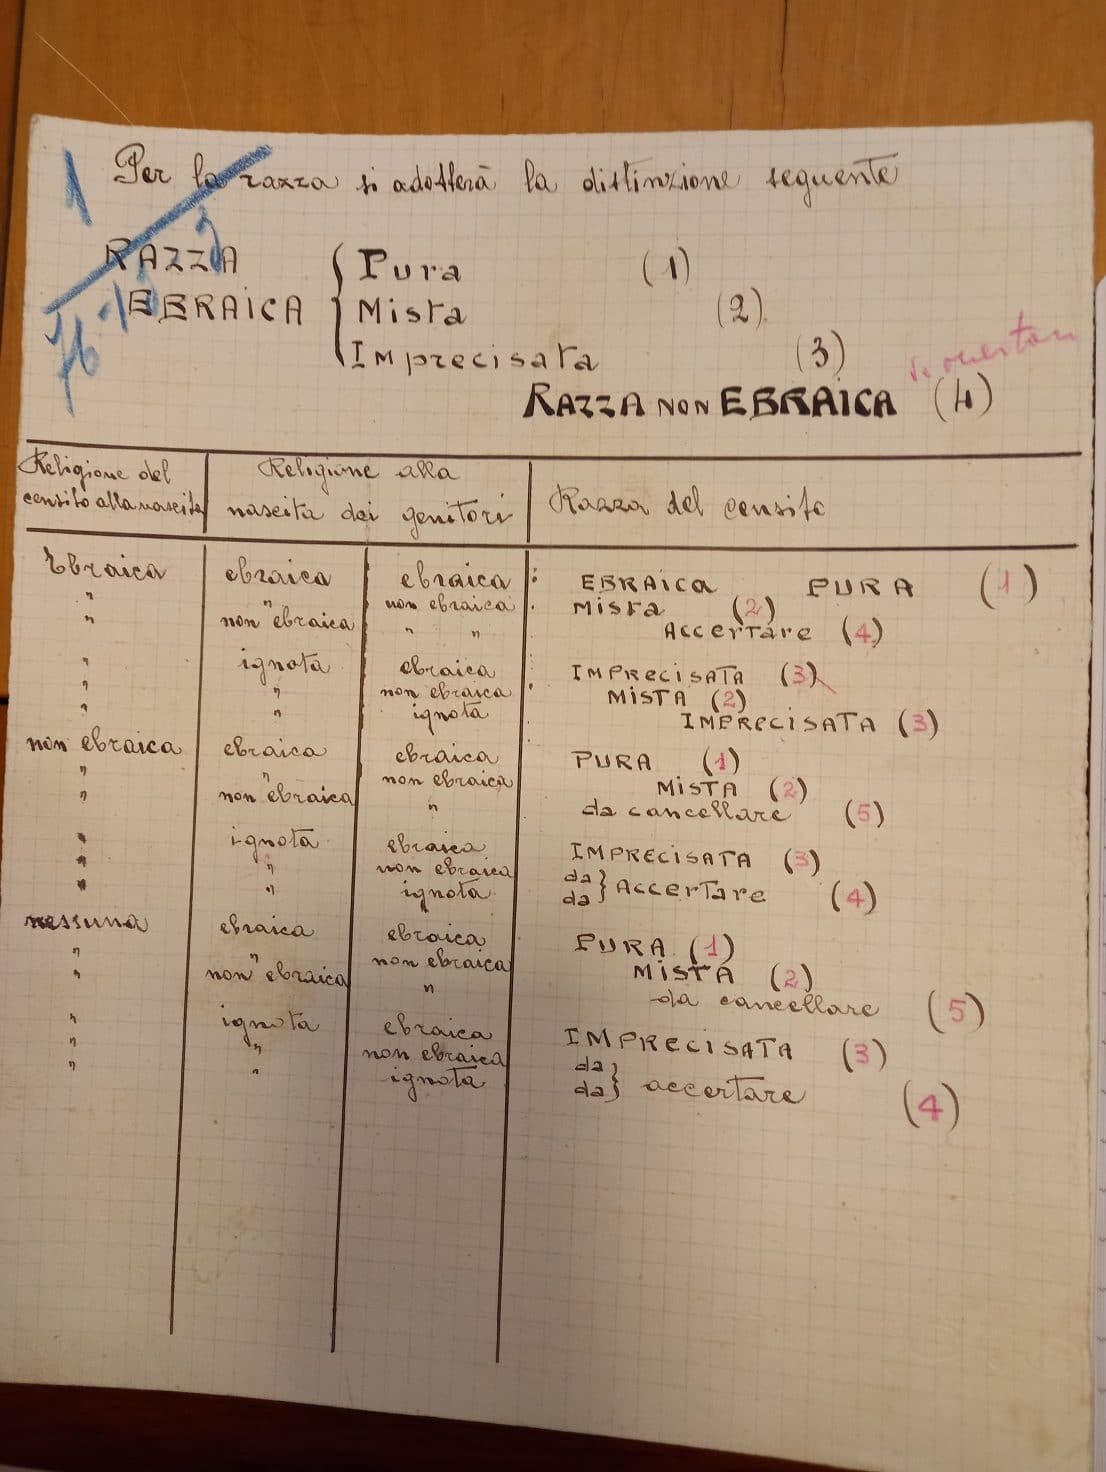 Per la razza si adotterà la distinzione seguente
RAZZA EBRAICA { Pura (1)
Mista (2)
Imprecisata (3)
RAZZA NON EBRAICA (4)
Religione del censito alla nascita | Religione alla nascita dei genitori | Razza del censito
Ebraica ebraica ebraica : EBRAICA PURA (1)
" " non ebraica . Mista (2)
" non ebraica " " Accertare (4)
" ignota ebraica : IMPRECISATA (3)
" " non ebraica . MISTA (2)
" " ignota IMPRECISATA (3)
non ebraica ebraica ebraica PURA (1)
" " non ebraica MISTA (2)
" non ebraica " da cancellare (5)
" ignota ebraica IMPRECISATA (3)
" " non ebraica da } Accertare (4)
" " ignota da }
nessuna ebraica ebraica PURA (1)
" " non ebraica MISTA (2)
" non ebraica " da cancellare (5)
" ignota ebraica IMPRECISATA (3)
" " non ebraica da } accertare (4)
" " ignota da }